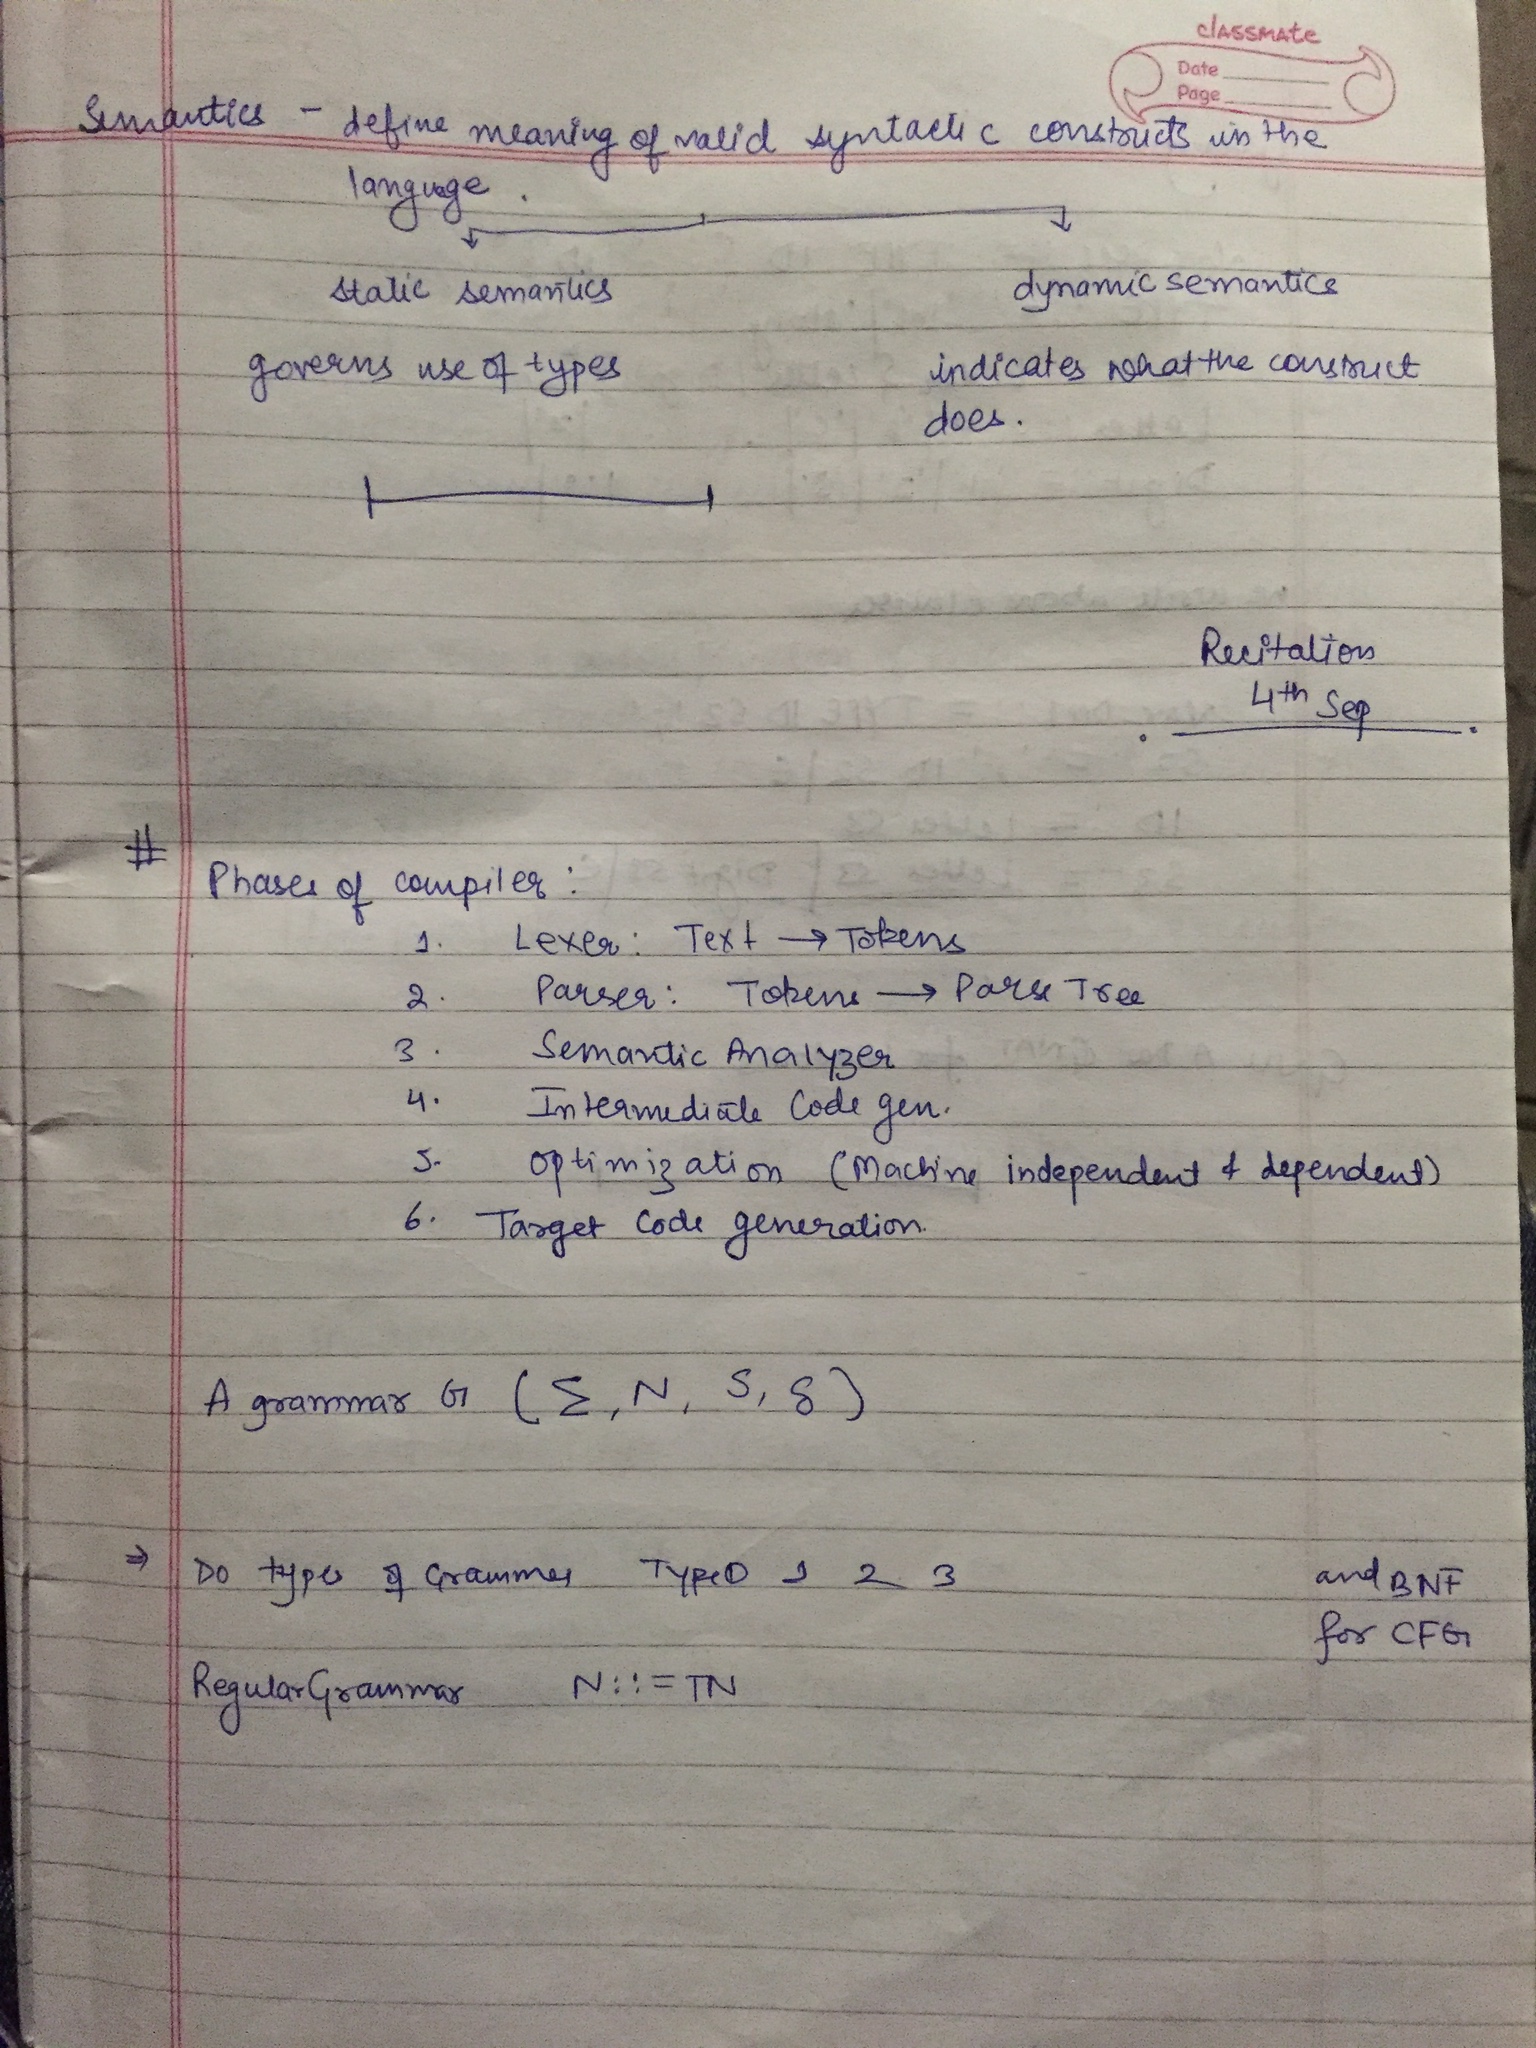 classmate
Date
Page
Semantics - define meaning of valid syntactic constructs in the
language.
static semantics dynamic semantics
governs use of types indicates what the construct
does.
Recitation
4th Sep
# Phases of compiler:
1. Lexer: Text → Tokens
2. Parser: Tokens → Parse Tree
3. Semantic Analyzer
4. Intermediate Code gen.
5. Optimization (Machine independent & dependent)
6. Target Code generation.
A grammar G (Σ, N, S, δ)
⇒ Do types of Grammer Type 0 1 2 3 and BNF
for CFG
Regular Grammar N::=TN